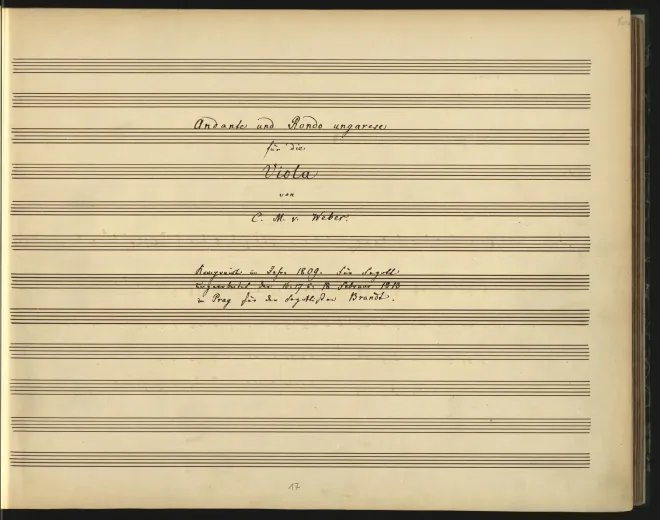 Andante und Rondo ungarese
für die
Viola
von
C. M. v. Weber.
im Jahr 1809. für Fagott
Februar 1813
in Prag für den Fagottisten Brandt.
17